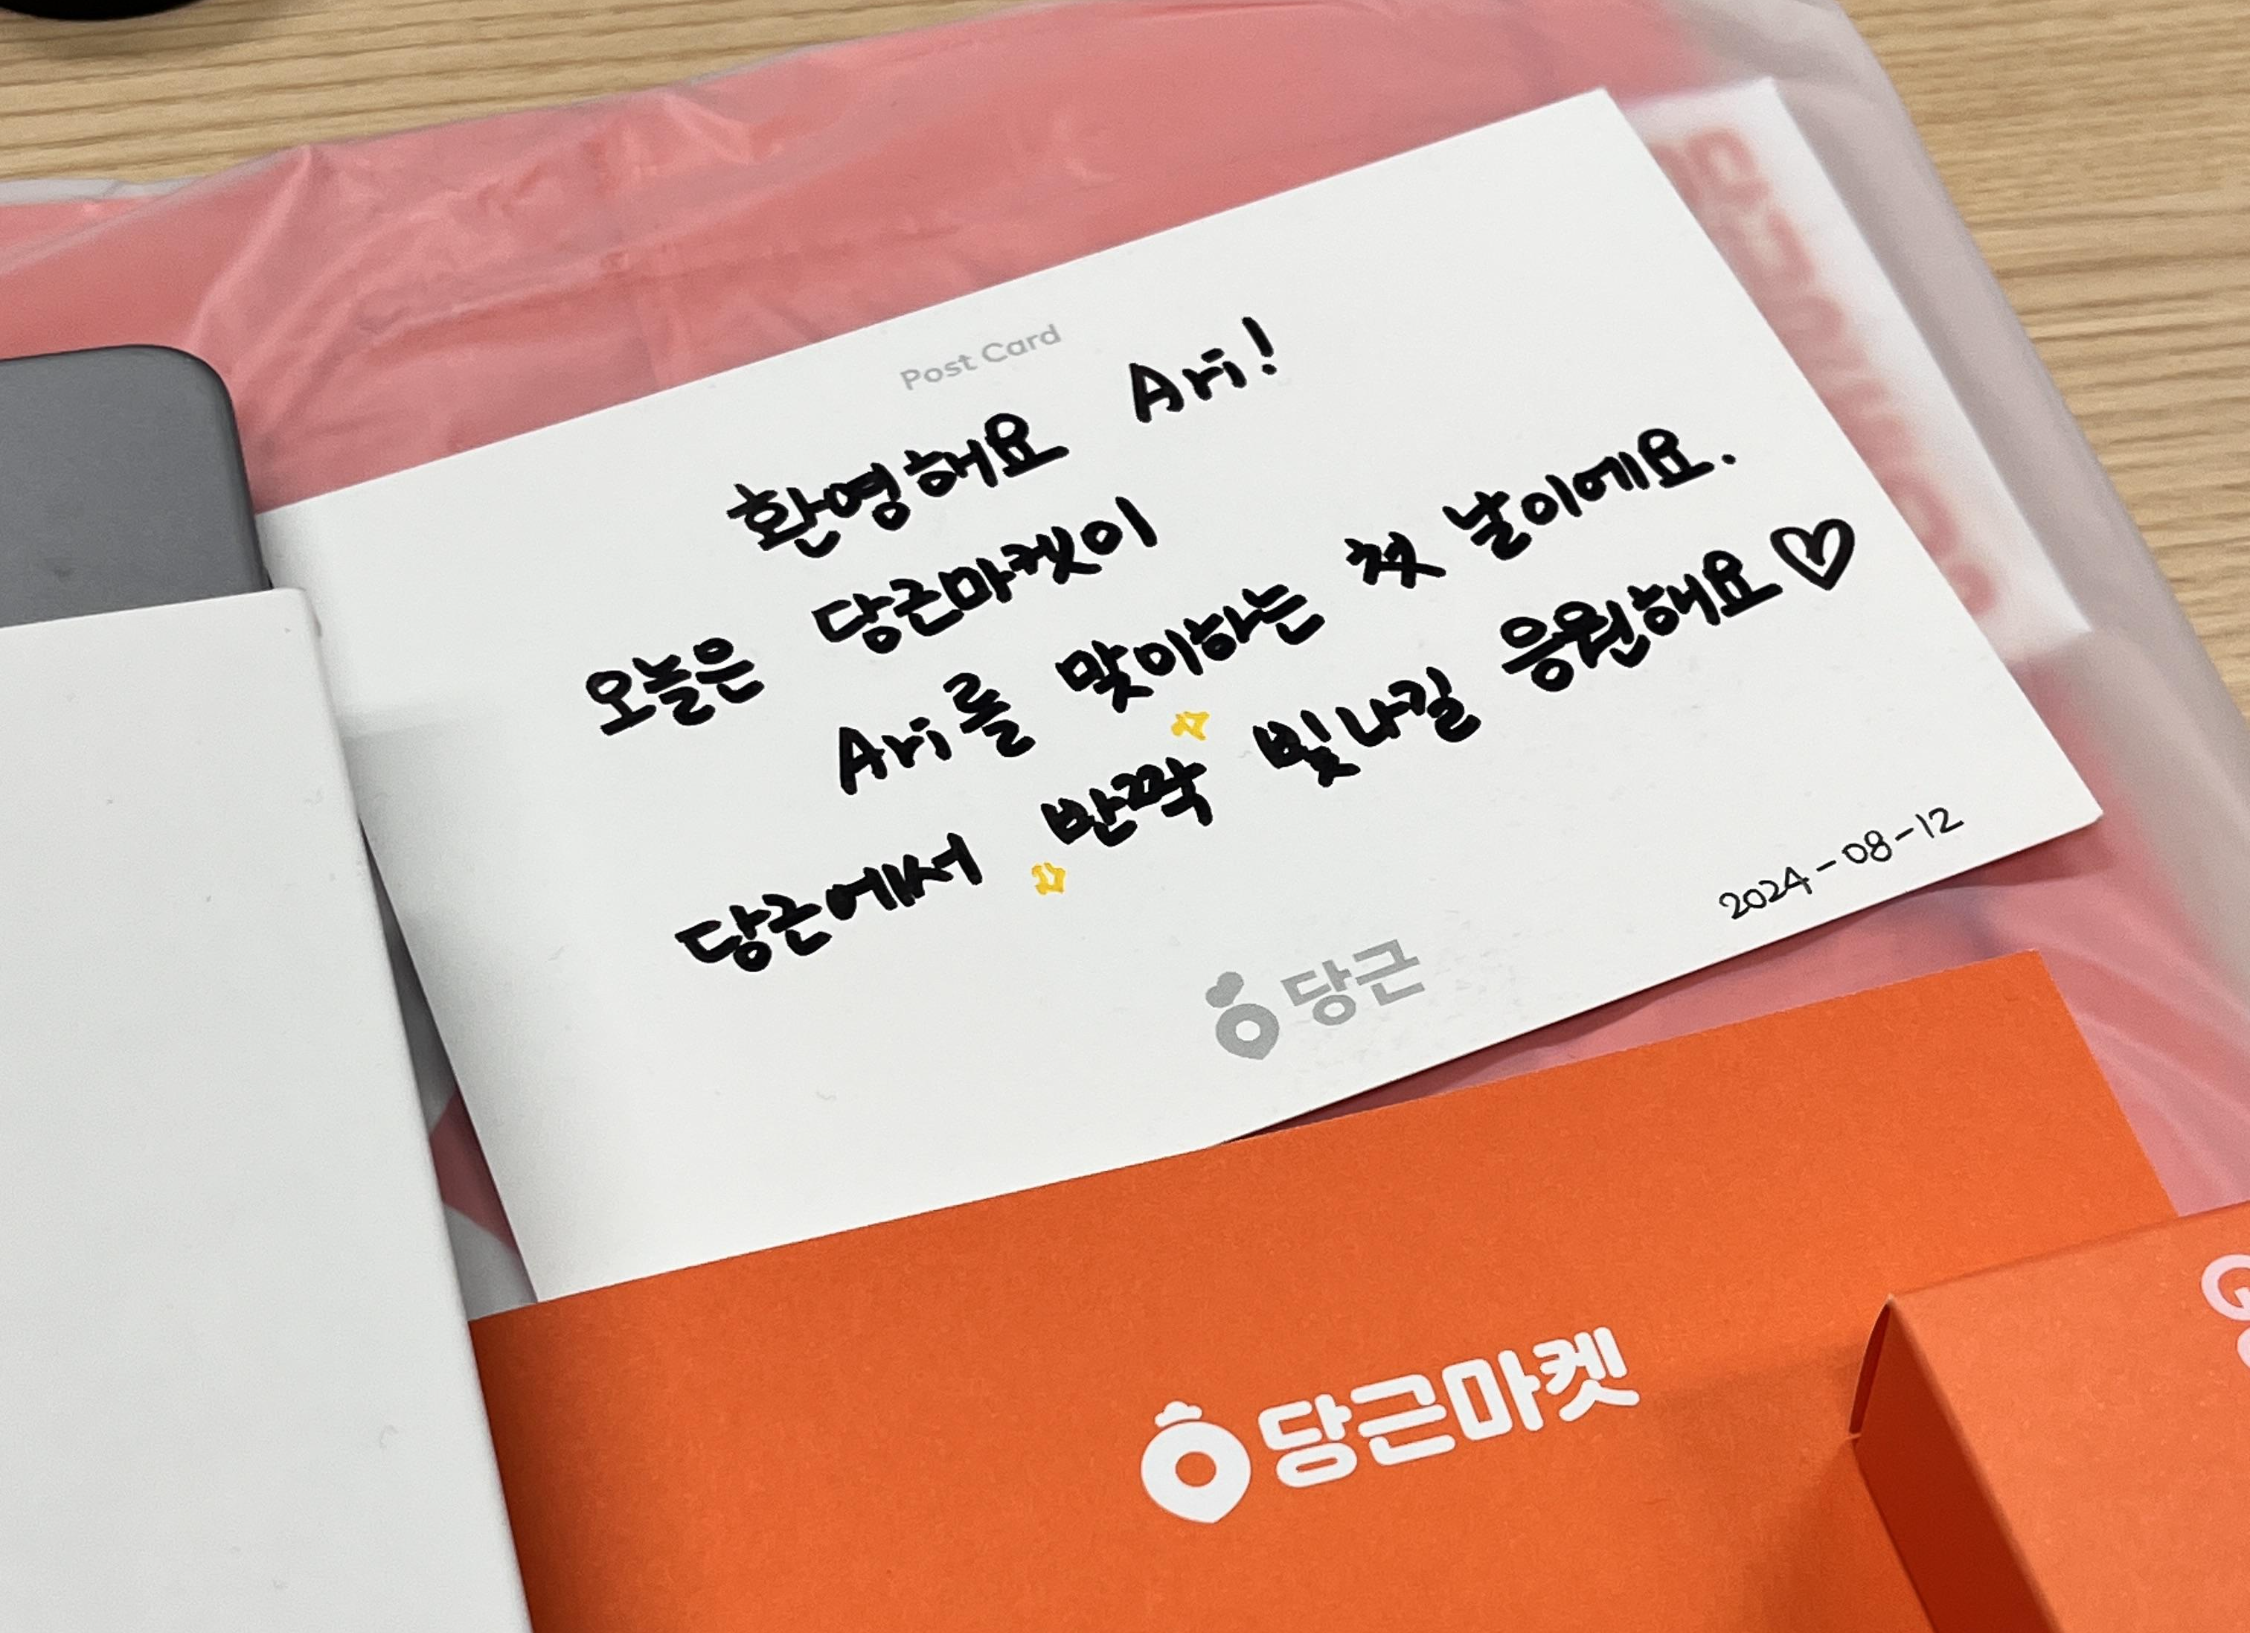 Post Card
환영해요 Ari!
오늘은 당근마켓이
Ari를 맞이하는 첫 날이에요.
당근에서 반짝 빛나길 응원해요♡
2024-08-12
당근
당근마켓